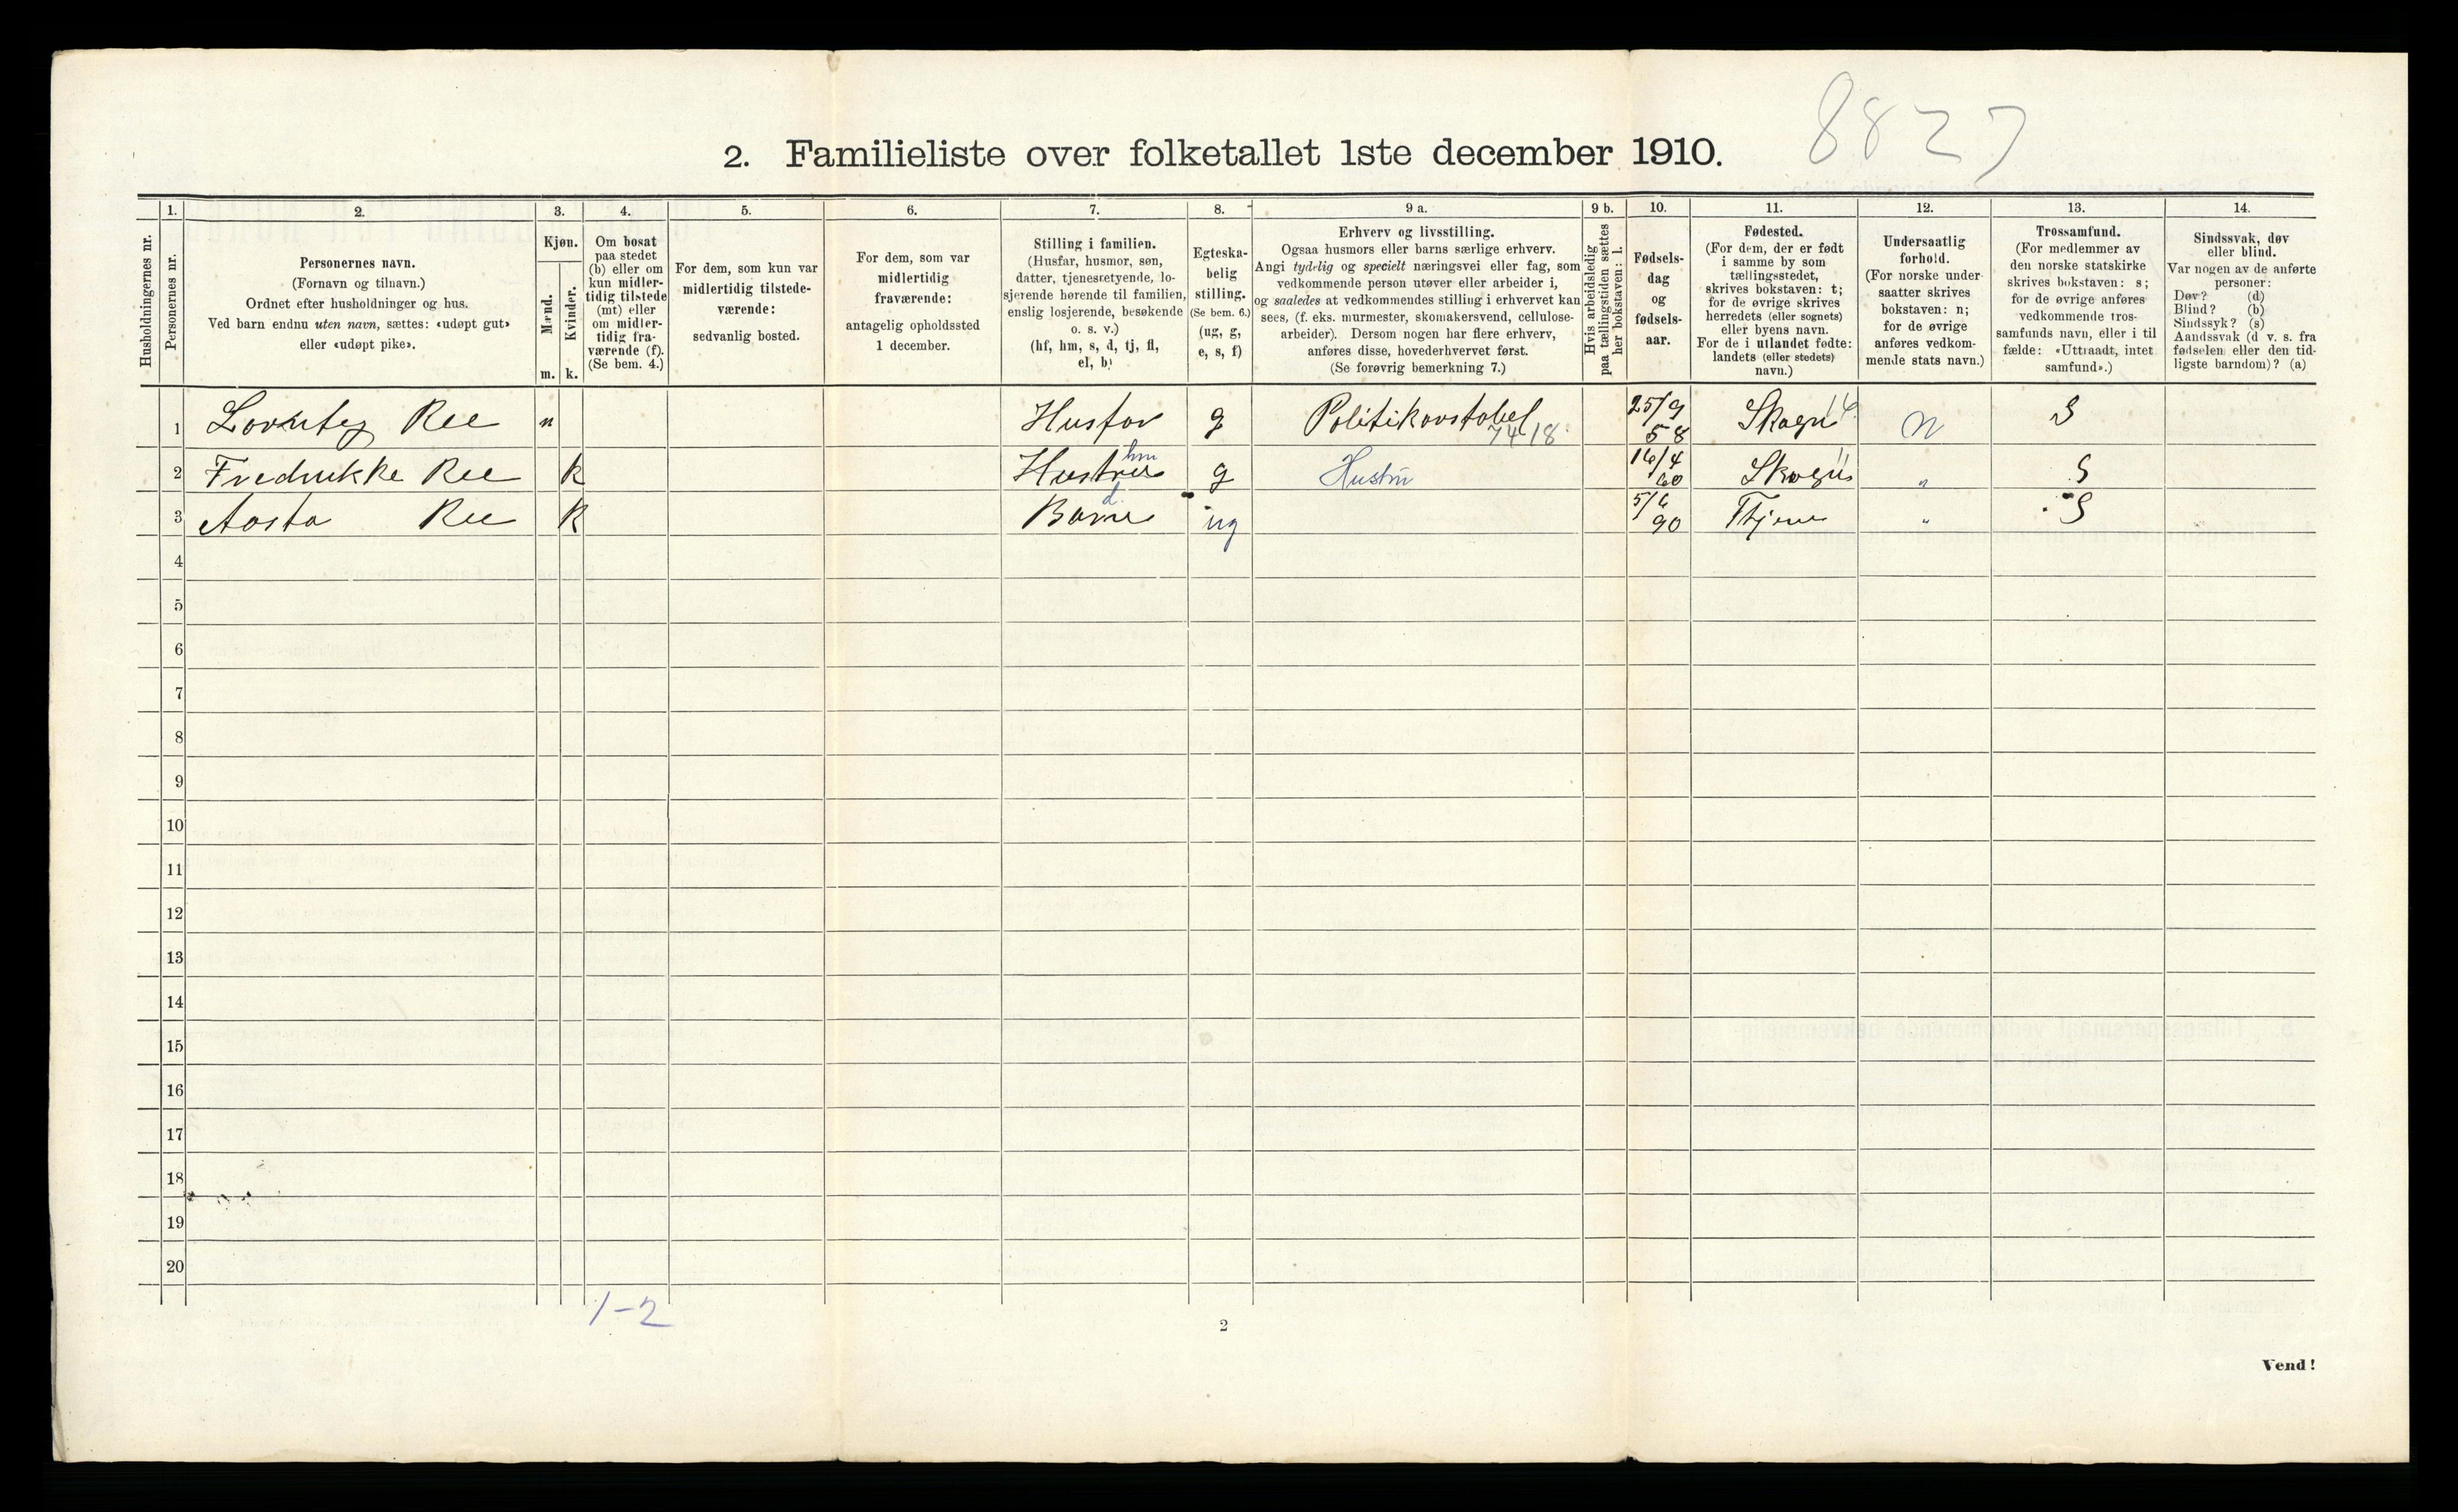 8827
2. Familieliste over folketallet 1ste december 1910.
Husholdningernes nr.
1.
Personernes nr.
2.
Personernes navn.
(Fornavn og tilnavn.)
Ordnet efter husholdninger og hus.
Ved barn endnu uten navn, sættes: «udøpt gut»
eller «udøpt pike».
3.
Kjøn.
Mænd.
Kvinder.
m. k.
4.
Om bosat
paa stedet
(b) eller om
kun midler-
tidig tilstede
(mt) eller
om midler-
tidig fra-
værende (f).
(Se bem. 4.)
5.
For dem, som kun var
midlertidig tilstede-
værende:
sedvanlig bosted.
6.
For dem, som var
midlertidig
fraværende:
antagelig opholdssted
1 december.
7.
Stilling i familien.
(Husfar, husmor, søn,
datter, tjenestetyende, lo-
sjerende hørende til familien,
enslig losjerende, besøkende
o. s. v.)
(hf, hm, s, d, tj, fl,
el, b)
8.
Egteska-
belig
stilling.
(Se bem. 6.)
(ug, g,
e, s, f)
9 a.
Erhverv og livsstilling.
Ogsaa husmors eller barns særlige erhverv.
Angi tydelig og specielt næringsvei eller fag, som
vedkommende person utøver eller arbeider i,
og saaledes at vedkommendes stilling i erhvervet kan
sees, (f. eks. murmester, skomakersvend, cellulose-
arbeider). Dersom nogen har flere erhverv,
anføres disse, hovederhvervet først.
(Se forøvrig bemerkning 7.)
9 b.
Hvis arbeidsledig
paa tællingstiden sættes
her bokstaven: l.
10.
Fødsels-
dag
og
fødsels-
aar.
11.
Fødested.
(For dem, der er født
i samme by som
tællingsstedet,
skrives bokstaven: t;
for de øvrige skrives
herredets (eller sognets)
eller byens navn.
For de i utlandet fødte:
landets (eller stedets)
navn.)
12.
Undersaatlig
forhold.
(For norske under-
saatter skrives
bokstaven: n;
for de øvrige
anføres vedkom-
mende stats navn.)
13.
Trossamfund.
(For medlemmer av
den norske statskirke
skrives bokstaven: s;
for de øvrige anføres
vedkommende tros-
samfunds navn, eller i til
fælde: «Uttraadt, intet
samfund».)
14.
Sindssvak, døv
eller blind.
Var nogen av de anførte
personer:
Døv? (d)
Blind? (b)
Sindssyk? (s)
Aandssvak (d v. s. fra
fødselen eller den tid-
ligste barndom)? (a)
1 Ree m Husfar g Politikonstabel 7418 25/9 58 n S
2 Fredrikke Ree k Hustru hm g Hustru 16/4 60 " S
3 Aasta Ree k Barn d ug 5/6 90 " S
4
5
6
7
8
9
10
11
12
13
14
15
16
17
18
19
20
1-2
2
Vend!